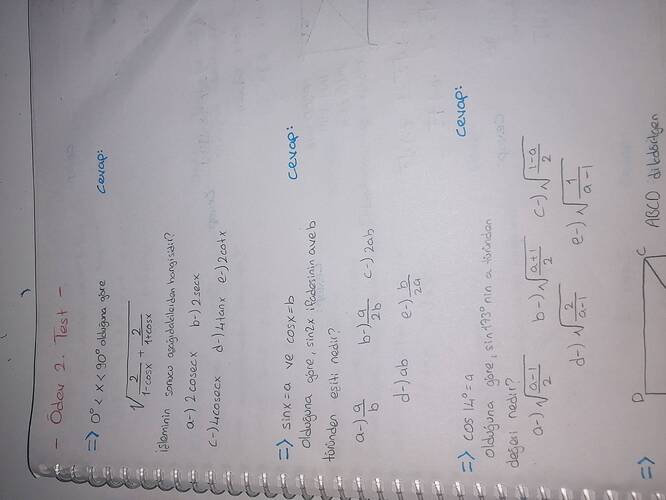 - Ödev 2. Test -
=> 0° < x < 90° olduğuna göre
Cevap:
√(2/(1-cosx) + 2/(1+cosx))
işleminin sonucu aşağıdakilerden hangisidir?
a-) 2cosecx b-) 2secx
c-) 4cosecx d-) 4tanx e-) 2cotx
=> sinx=a ve cosx=b
Cevap:
olduğuna göre, sin2x ifadesinin a ve b
türünden eşiti nedir?
a-) a/b b-) a/2b c-) 2ab
d-) ab e-) b/2a
=> cos14°=a
Cevap:
olduğuna göre, sin173° nin a türünden
değeri nedir?
a-) √((a-1)/2) b-) √((a+1)/2) c-) √((1-a)/2)
d-) √(2/(a-1)) e-) √(1/(a-1))
=>
D
C
ABCD dikdörtgen